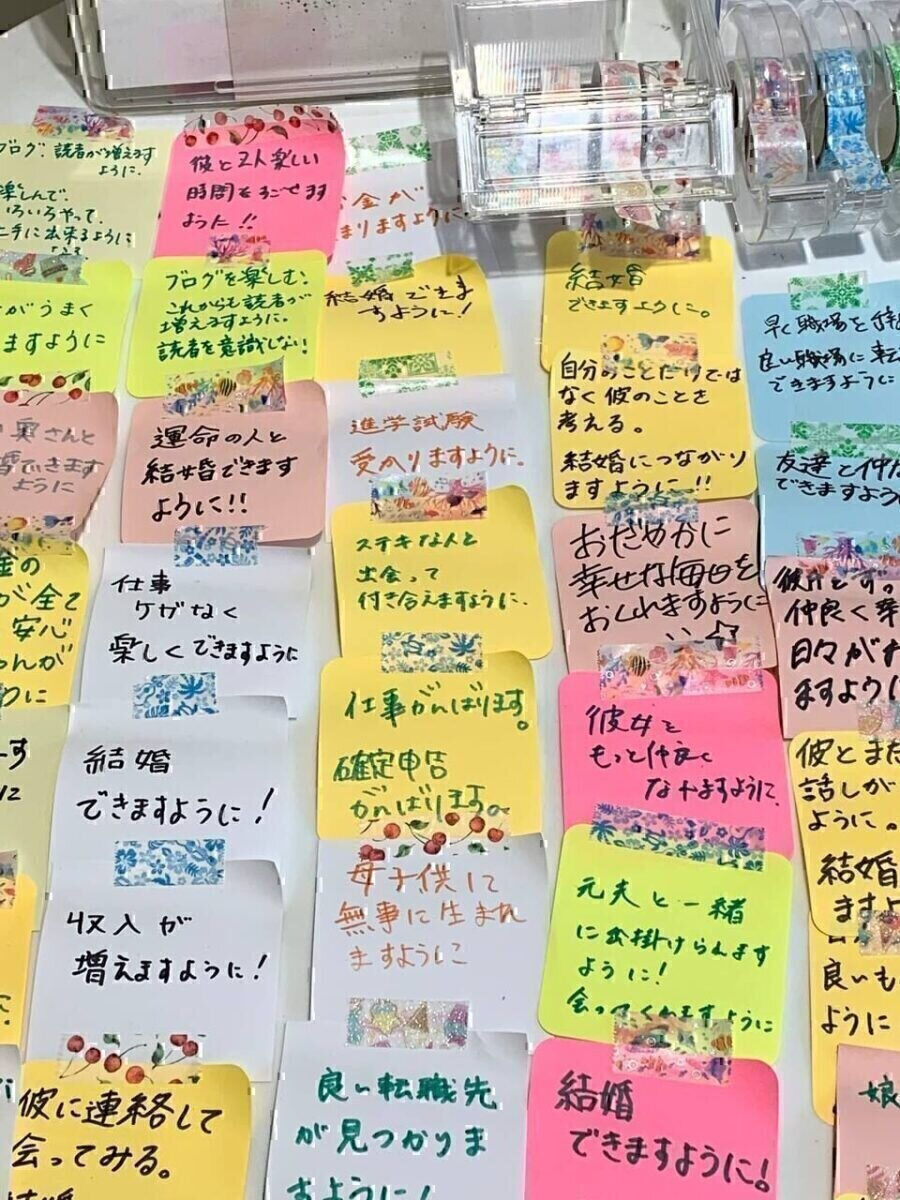 ブログ. 読者が増えます
ように.
楽しんで.
いろいろやって.
上手に出来るように
なる
彼と2人楽しい
時間をすごせます
ように!!
お金が
まりますように.
がうまく
ますように
ブログを楽しむ.
これからも読者が
増えますように.
読者を意識しない!
結婚できま
すように!
結婚
できますように。
早く職場を
良い職場に転
できますように
自分のことだけでは
なく彼のことを
考える。
結婚につながり
ますように!!
実さんと
婚できます
ように
運命の人と
結婚できます
ように!!
進学試験
受かりますように.
友達と仲
できますよう
金の
が全て
安心
ゃんが
わに
仕事
ケガなく
楽しくできますように
ステキな人と
出会って
付き合えますように.
おだやかに
幸せな毎日を
おくれますように
仲良く幸
日々が
ますように
結婚
できますように!
仕事がんばります。
確定申告
がんばります。
彼女と
もっと仲良く
なれますように.
彼とまた
話しが
ように。
結婚
ますよ
収入が
増えますように!
母子供に
無事に生まれ
ますように
元夫と一緒
に出掛けられます
ように!
会ってくれますように
良いも
ように
彼に連絡して
会ってみる。
結婚
良い転職先
が見つかりま
すように!
結婚
できますように!
娘